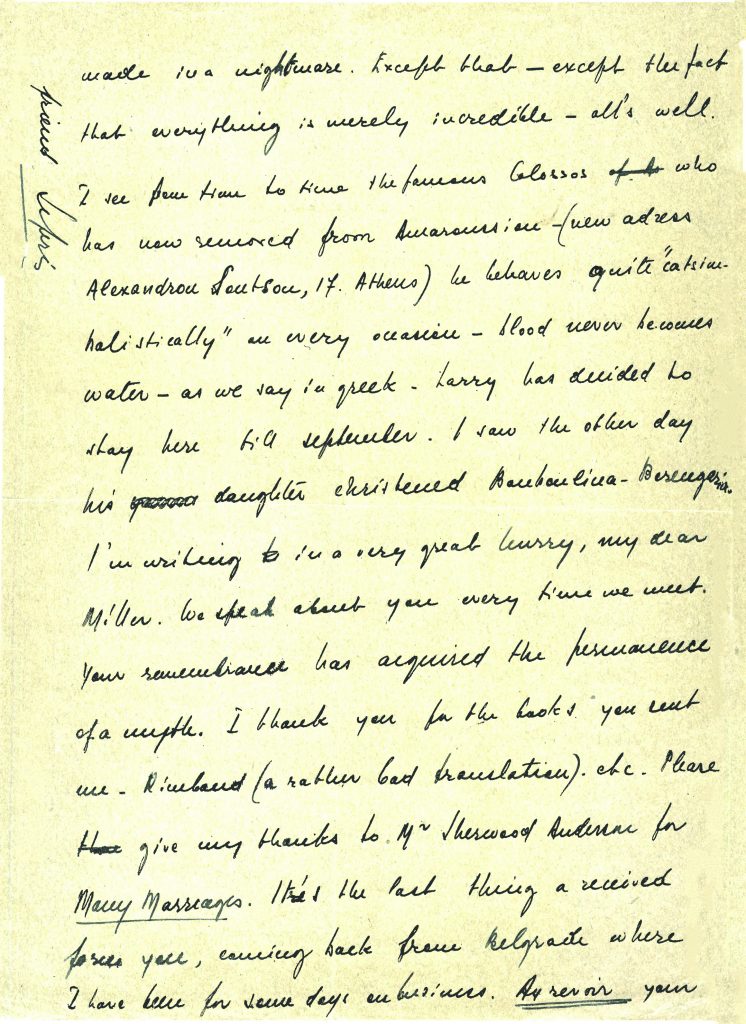 made in a nightmare. Except that – except the fact
that everything is merely incredible – all's well.
I see from time to time the famous Colossos of the who
has now removed from Amaroussion – (new adress
Alexandrou Soutsou, 17. Athens) he behaves quite "catsim-
balistically" on every occasion – blood never becomes
water – as we say in greek – Larry has decided to
stay here till september. I saw the other day
his daughter christened Bouboulina-Berengeria.
I'm writing in a very great hurry, my dear
Miller. We speak about you every time we meet.
Your remembrance has acquired the permanence
of a myth. I thank you for the books you sent
me – Rimbaud (a rather bad translation). etc. Please
give my thanks to Mr Sherwood Anderson for
Many Marriages. It's the last thing a received
from you, coming back from Belgrade where
I have been for some days on business. Au revoir your
friend Seferis